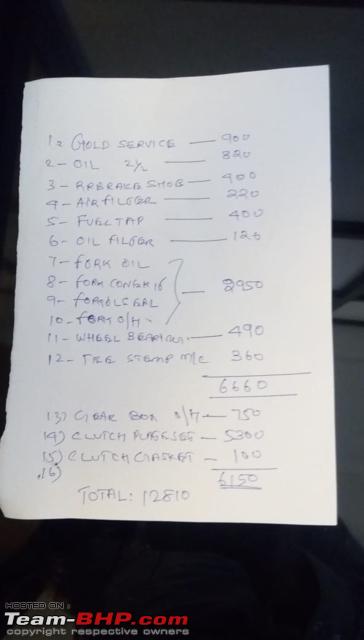 1- GOLD SERVICE — 900
2- OIL 2½ — 820
3- RRBRAKE SHOE — 400
4- AIR FILTER — 220
5- FUEL TAP — 400
6- OIL FILTER — 120
7- FORK OIL
8- FORK
9- FORK OLSEAL
10- FORK O/H - 2950
11- WHEEL — 490
12- 360
6660
13) GEAR BOX O/H — 750
14) CLUTCH — 5300
15) CLUTCH GASKET — 100
16)
6150
TOTAL: 12810
HOSTED ON :
Team-BHP.com
copyright respective owners